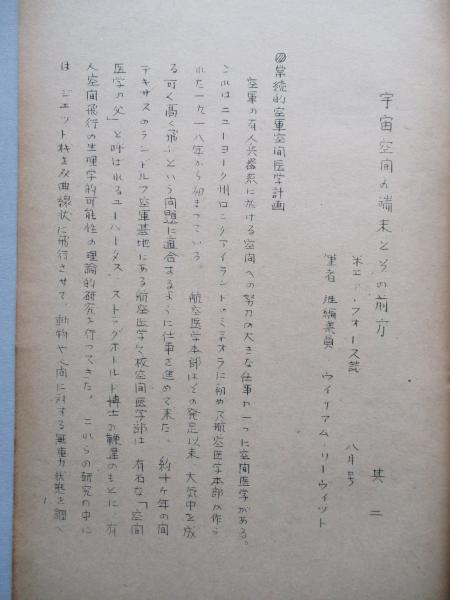 宇宙空間の端末とその前方　其二
米エア・フォース誌　八月号
筆者　准編集員　ウイリアム・リーヴィット
◎常続的空軍空間医学計画
空軍の有人兵器系に於ける空間への努力の大きな仕事の一つに空間医学がある。
これはニューヨーク州ロングアイランド・ミネオラに初めて航空医学本部が作ら
れた一九一八年から初まっている。　航空医学本部はその発足以来、大気中を成
る可く高く飛ぶという問題に適合するように仕事を進めて来た。　約十ヶ年の間
テキサスのランドルフ空軍基地にある航空医学々校空間医学部は　有名な「空間
医学の父」と呼ばれるユーハータス・ストラグホールド博士の鞭撻のもとに、有
人空間飛行の生理学的可能性の理論的研究を行ってきた。　これらの研究の中に
は　ジェット機を双曲線状に飛行させて、動物や人間に対する無重力状態を調べ